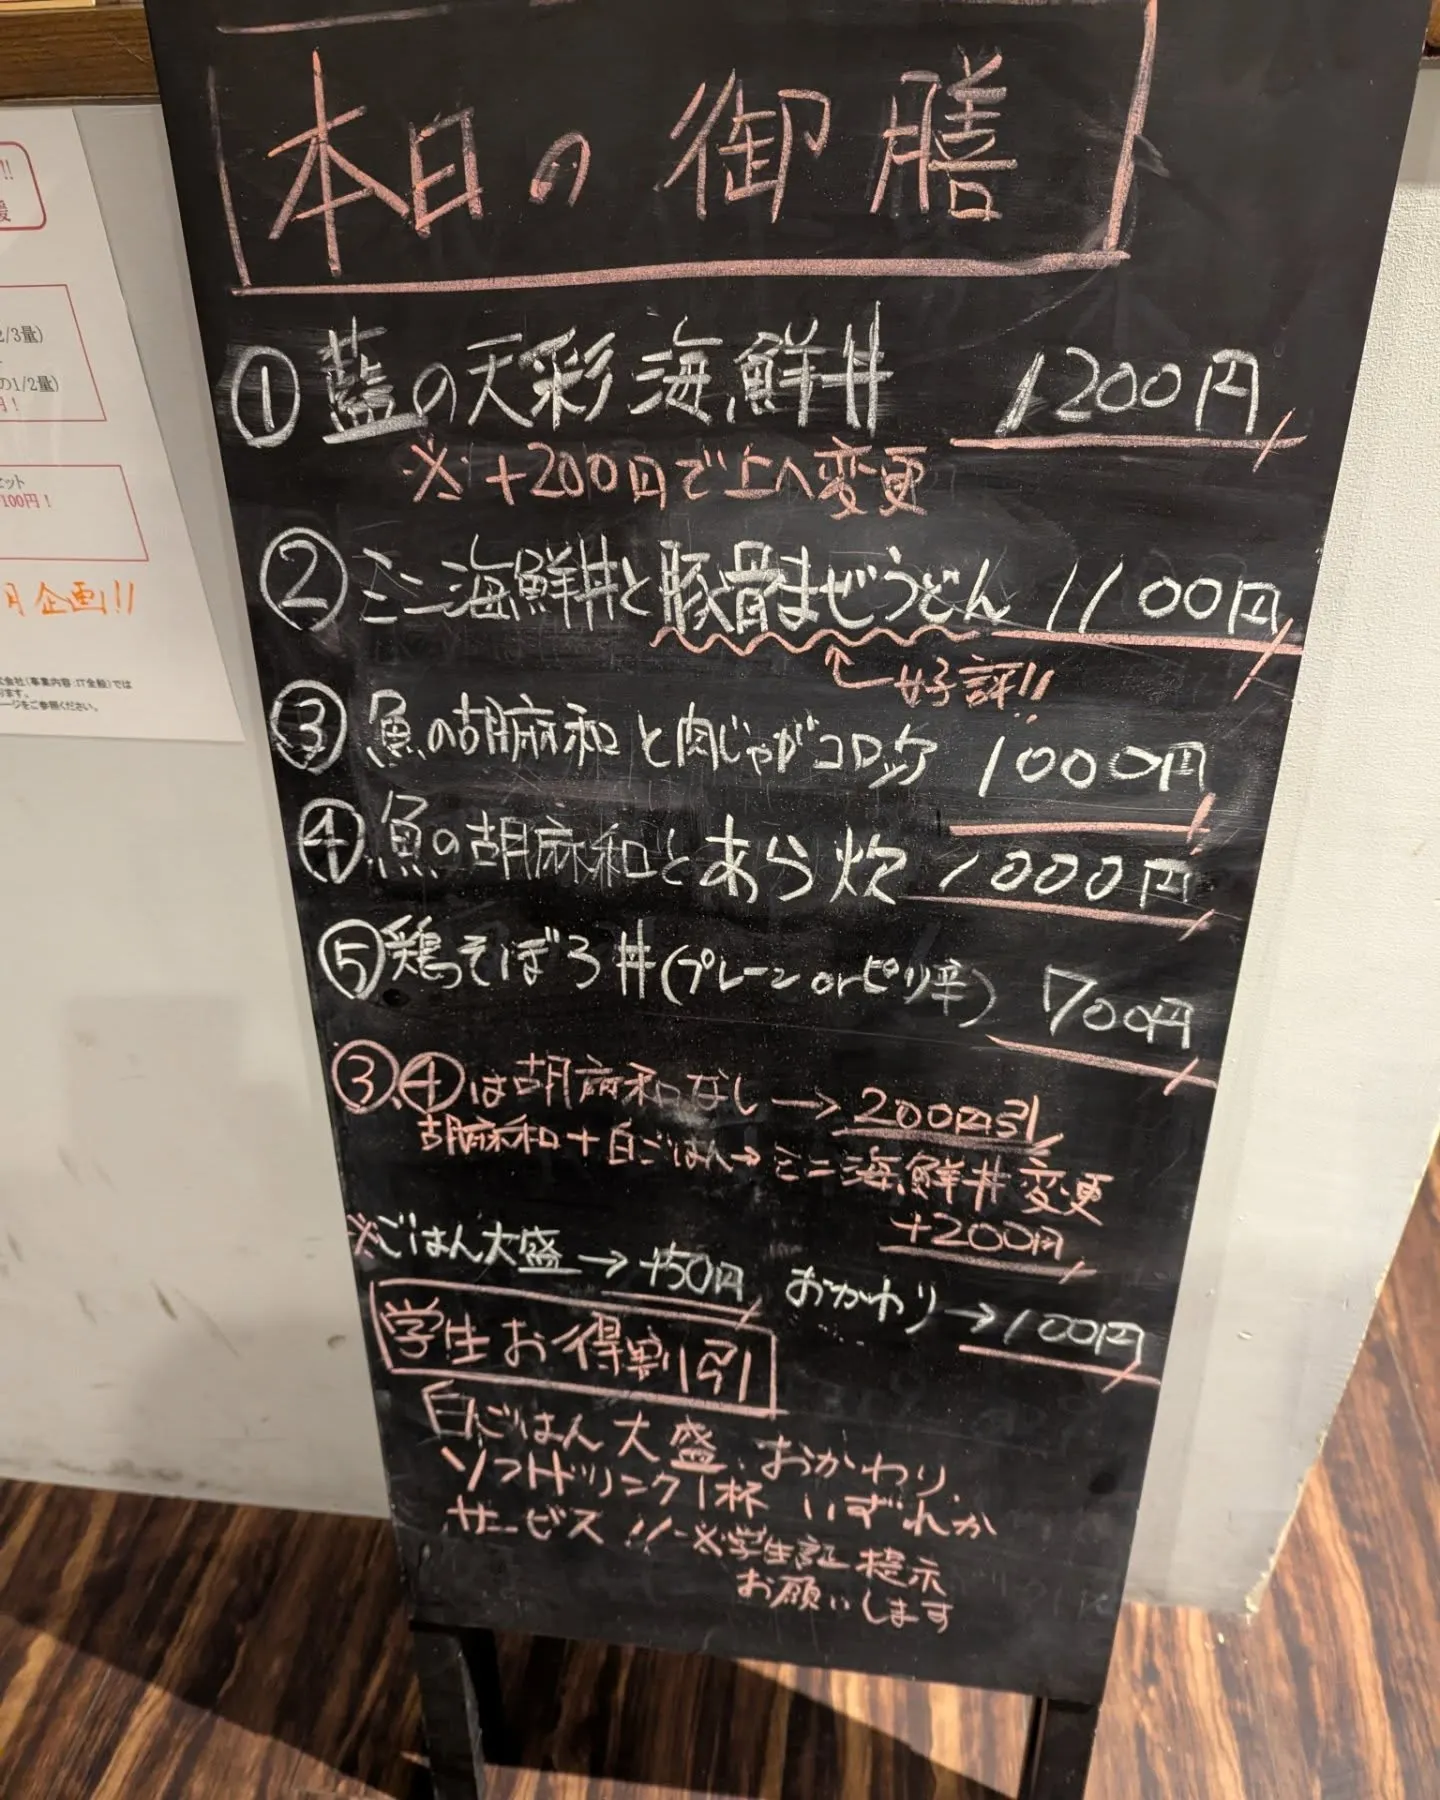 本日の御膳
①藍の天彩海鮮丼 1200円
※+200円で上へ変更
②ミニ海鮮丼と豚骨まぜうどん 1100円
←好評!!
③魚の胡麻和と肉じゃがコロッケ 1000円
④魚の胡麻和とあら炊 1000円
⑤鶏そぼろ丼(プレーンorピリ辛) 700円
③、④は胡麻和なし→200円引
胡麻和+白ごはん→ミニ海鮮丼変更
+200円
※ごはん大盛→+50円 おかわり→100円
学生お得割引
白ごはん大盛、おかわり、
ソフトドリンク1杯 いずれか
サービス!!※学生証提示
お願いします
!!
援
2/3量)
の1/2量)
月!
セット
100円!
月企画!!
式会社(事業内容:IT全般)では
ります。
ージをご参照ください。